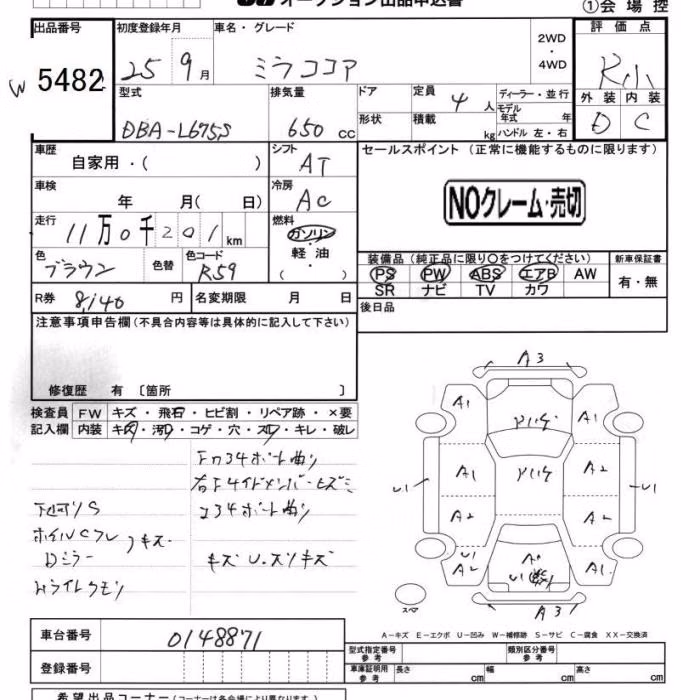 オークション出品申込書
①会場控
出品番号 5482
W
初度登録年月 25 9月
車名・グレード ミラココア
2WD・4WD
評価点 R小
外装 D 内装 C
型式 DBA-L675S
排気量 650 cc
ドア
形状
定員 4人
積載 kg
ディーラー・並行
モデル年式 年
ハンドル 左・右
車歴 自家用・( )
シフト AT
セールスポイント (正常に機能するものに限ります)
NOクレーム・売切
車検 年 月( 日)
冷房 AC
走行 11万0千201km
燃料 ガソリン・軽油・( )
色 ブラウン
色替
色コード R59
装備品 (純正品に限り○をつけてください)
PS PW ABS エアB AW
SR ナビ TV カワ
新車保証書 有・無
R券 8,140円
名変期限 月 日
後日品
注意事項申告欄 (不具合内容等は具体的に記入して下さい)
修復歴 有 〔箇所 〕
検査員記入欄
FW キズ・飛石・ヒビ割・リペア跡・×要
内装 キズ・汚レ・コゲ・穴・スレ・キレ・破レ
下廻りS
Dミラー
キズ U.スリキズ
A3
A1 A1
A1 A2
U1 U1
A2 A2
U1
A2 A1
U1
スペア
A3
A-キズ E-エクボ U-凹み W-補修跡 S-サビ C-腐食 XX-交換済
車台番号 0148871
登録番号
型式指定番号 参考
類別区分番号 参考
車庫証明用 参考 長さ cm 幅 cm 高さ cm
希望出品コーナー (コーナーは各会場により異なります)